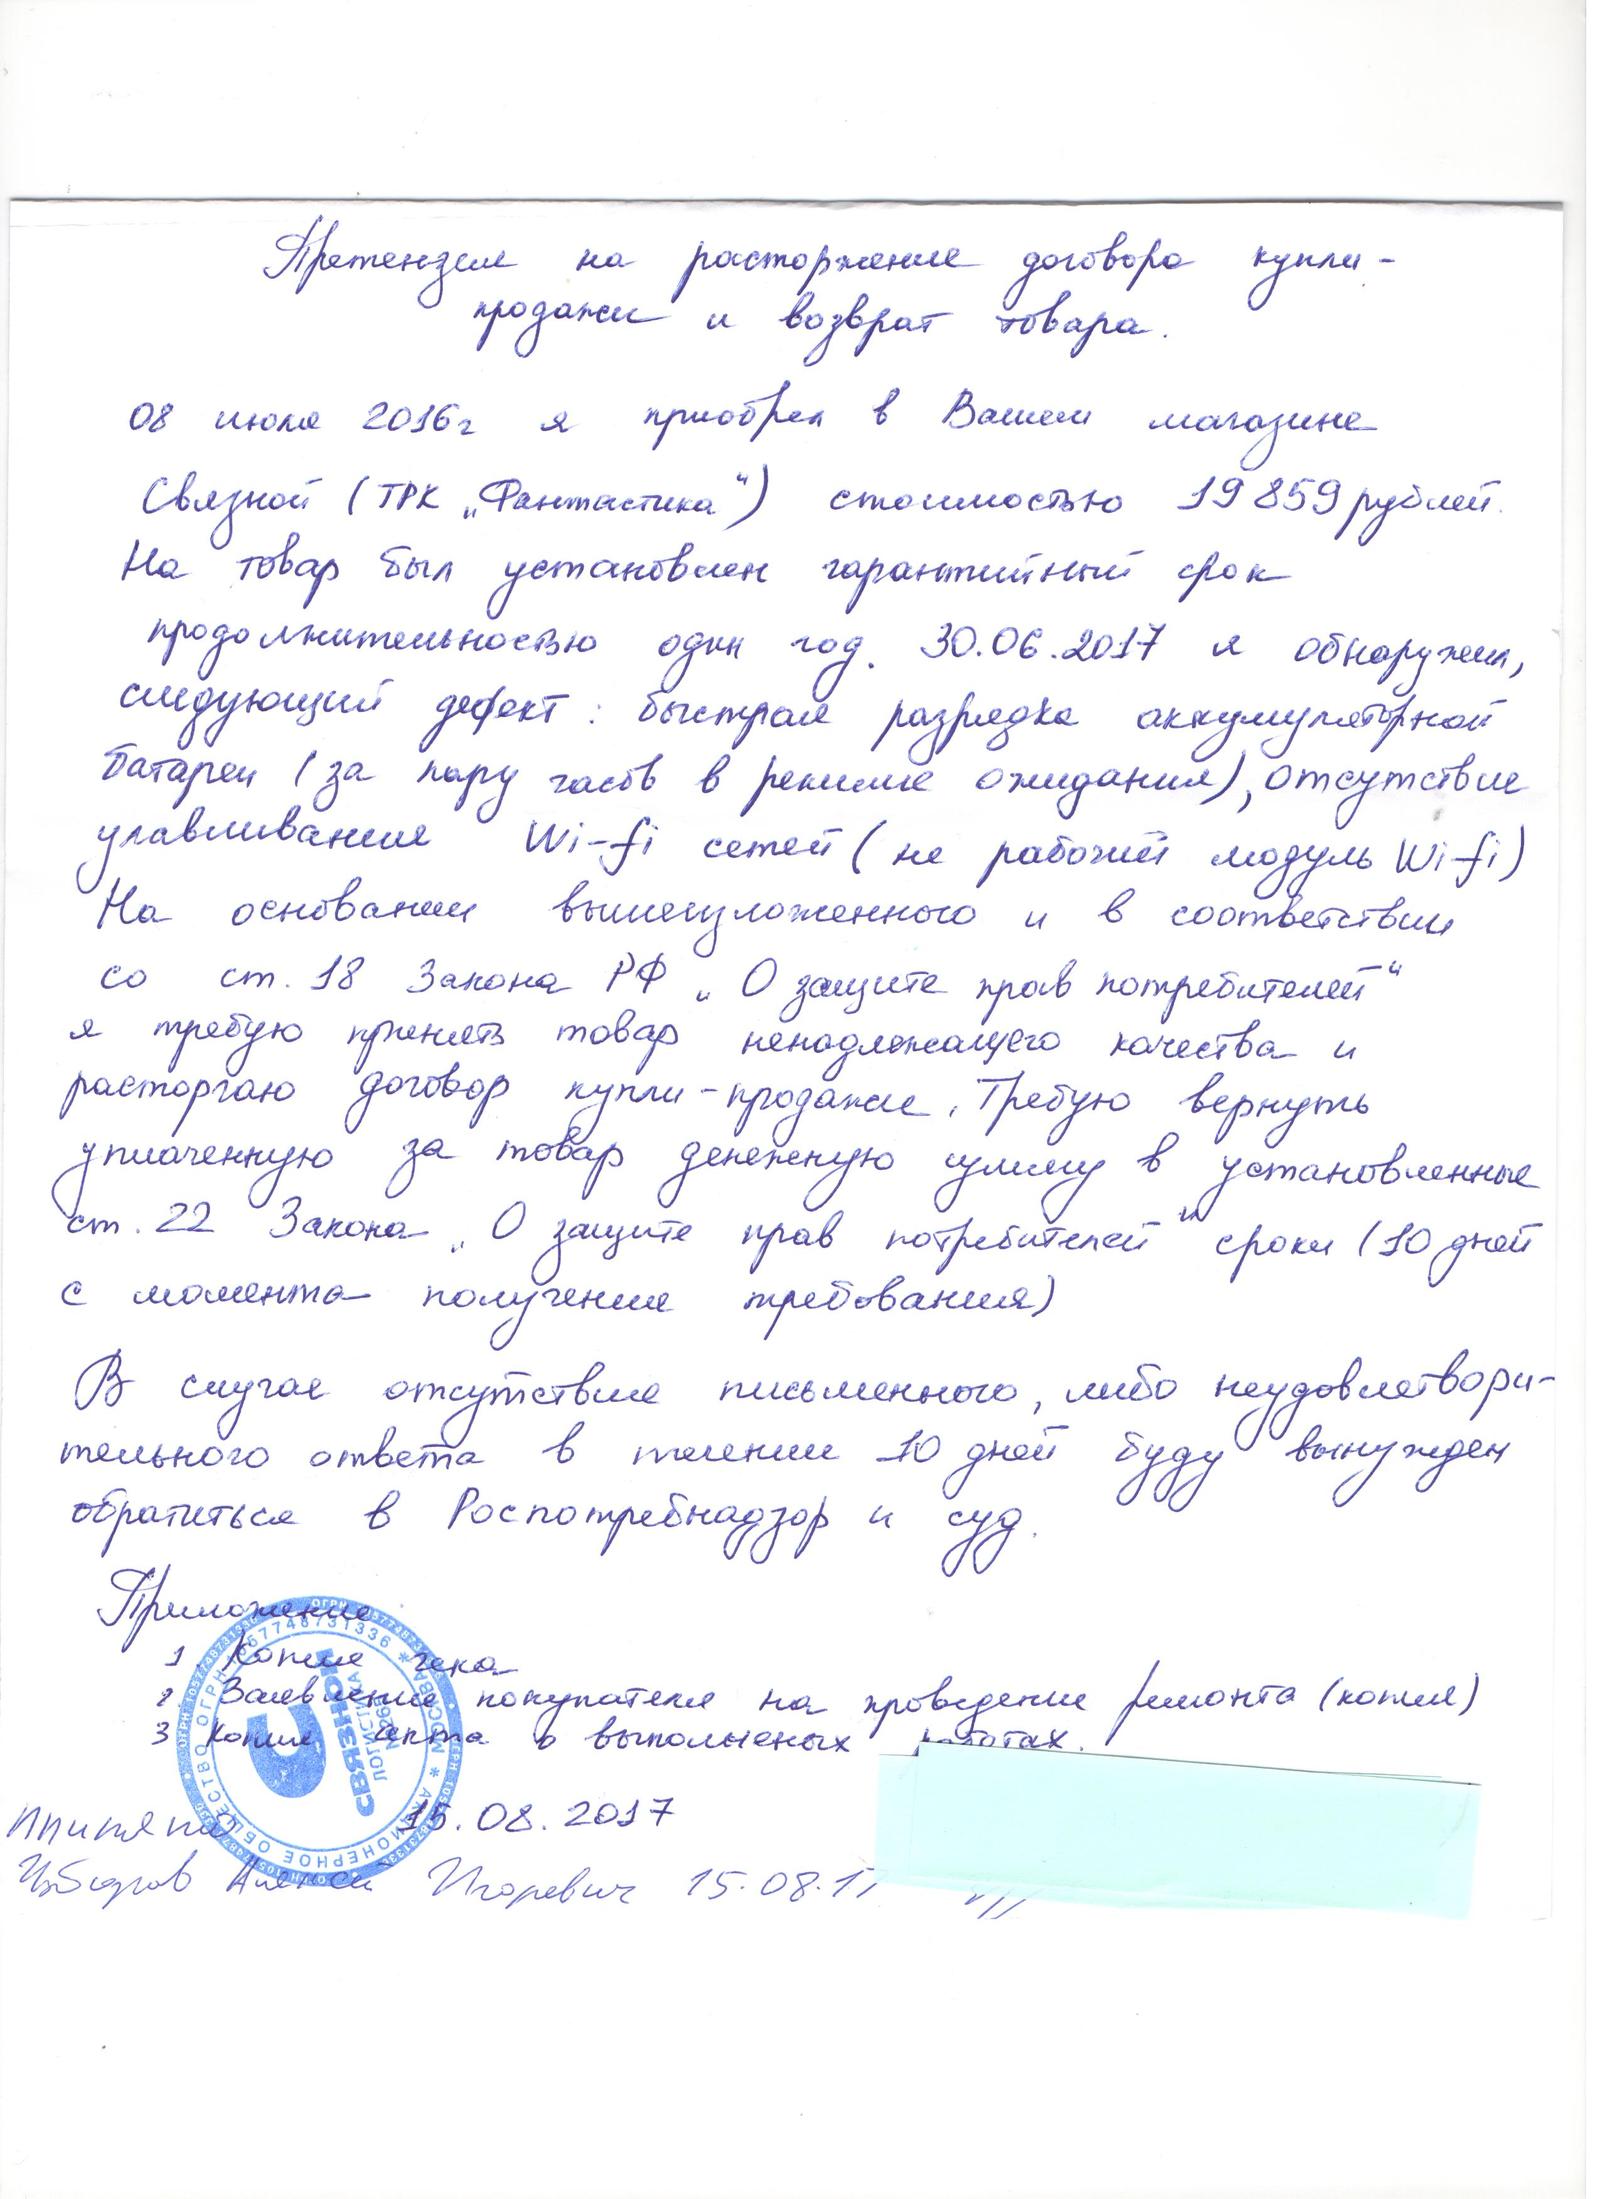 Претензия на расторжение договора купли-
продажи и возврат товара.
08 июля 2016г я приобрел в Вашем магазине
Связной (ТРК „Фантастика“) стоимостью 19 859 рублей.
На товар был установлен гарантийный срок
продолжительностью один год. 30.06.2017 я обнаружил,
следующий дефект: быстрая разрядка аккумуляторной
батареи (за пару часов в режиме ожидания), отсутствие
улавливания Wi-fi сетей (не рабочий модуль Wi-fi)
На основании вышеизложенного и в соответствии
со ст. 18 Закона РФ „О защите прав потребителей“
я требую принять товар ненадлежащего качества и
расторгаю договор купли-продажи. Требую вернуть
уплаченную за товар денежную сумму в установленные
ст. 22 Закона „О защите прав потребителей“ сроки (10 дней
с момента получения требования)
В случае отсутствия письменного, либо неудовлетвори-
тельного ответа в течении 10 дней буду вынужден
обратиться в Роспотребнадзор и суд.
Приложение
1. Копия чека
2. Заявление покупателя на проведение ремонта (копия)
3 Копия Акта о выполненых работах.
АКЦИОНЕРНОЕ ОБЩЕСТВО ОГРН 1057748731336 * МОСКВА *
СВЯЗНОЙ
ЛОГИСТИКА
принято 15.08.2017
Алексей Игоревич 15.08.17